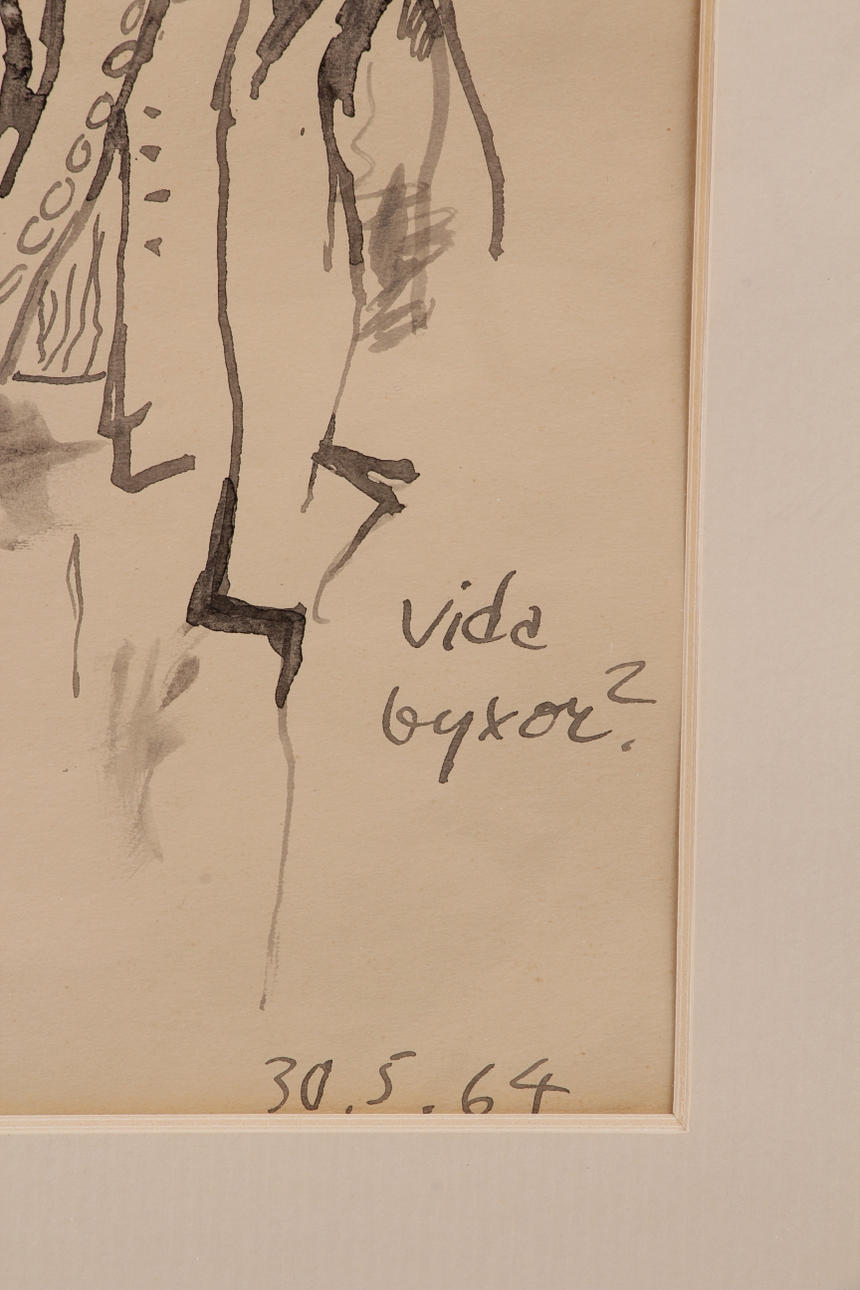 vida
byxor?
30.5.64